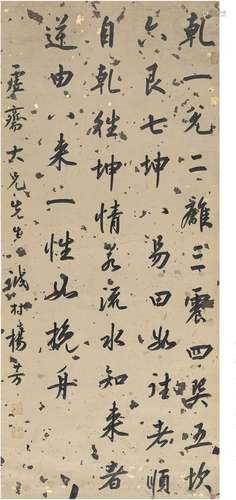 乾一兑二離三震四巽五坎
六艮七坤八易曰往者順
自乾坤情若流水知来者
逆由八来一性如挽舟
虚齋大兄先生 誠村楊芳